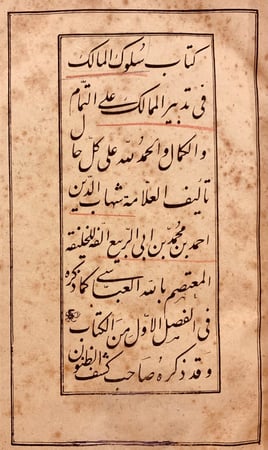 كتاب سلوك المالك
فى تدبير الممالك على التمام
والكمال والحمد لله على كل حال
تأليف العلامة شهاب الدين
احمد بن محمد بن ابى الربيع الفه للخليفة
المعتصم بالله العباسي كما ذكره
فى الفصل الاول من الكتاب
وقد ذكره صاحب كشف الظنون